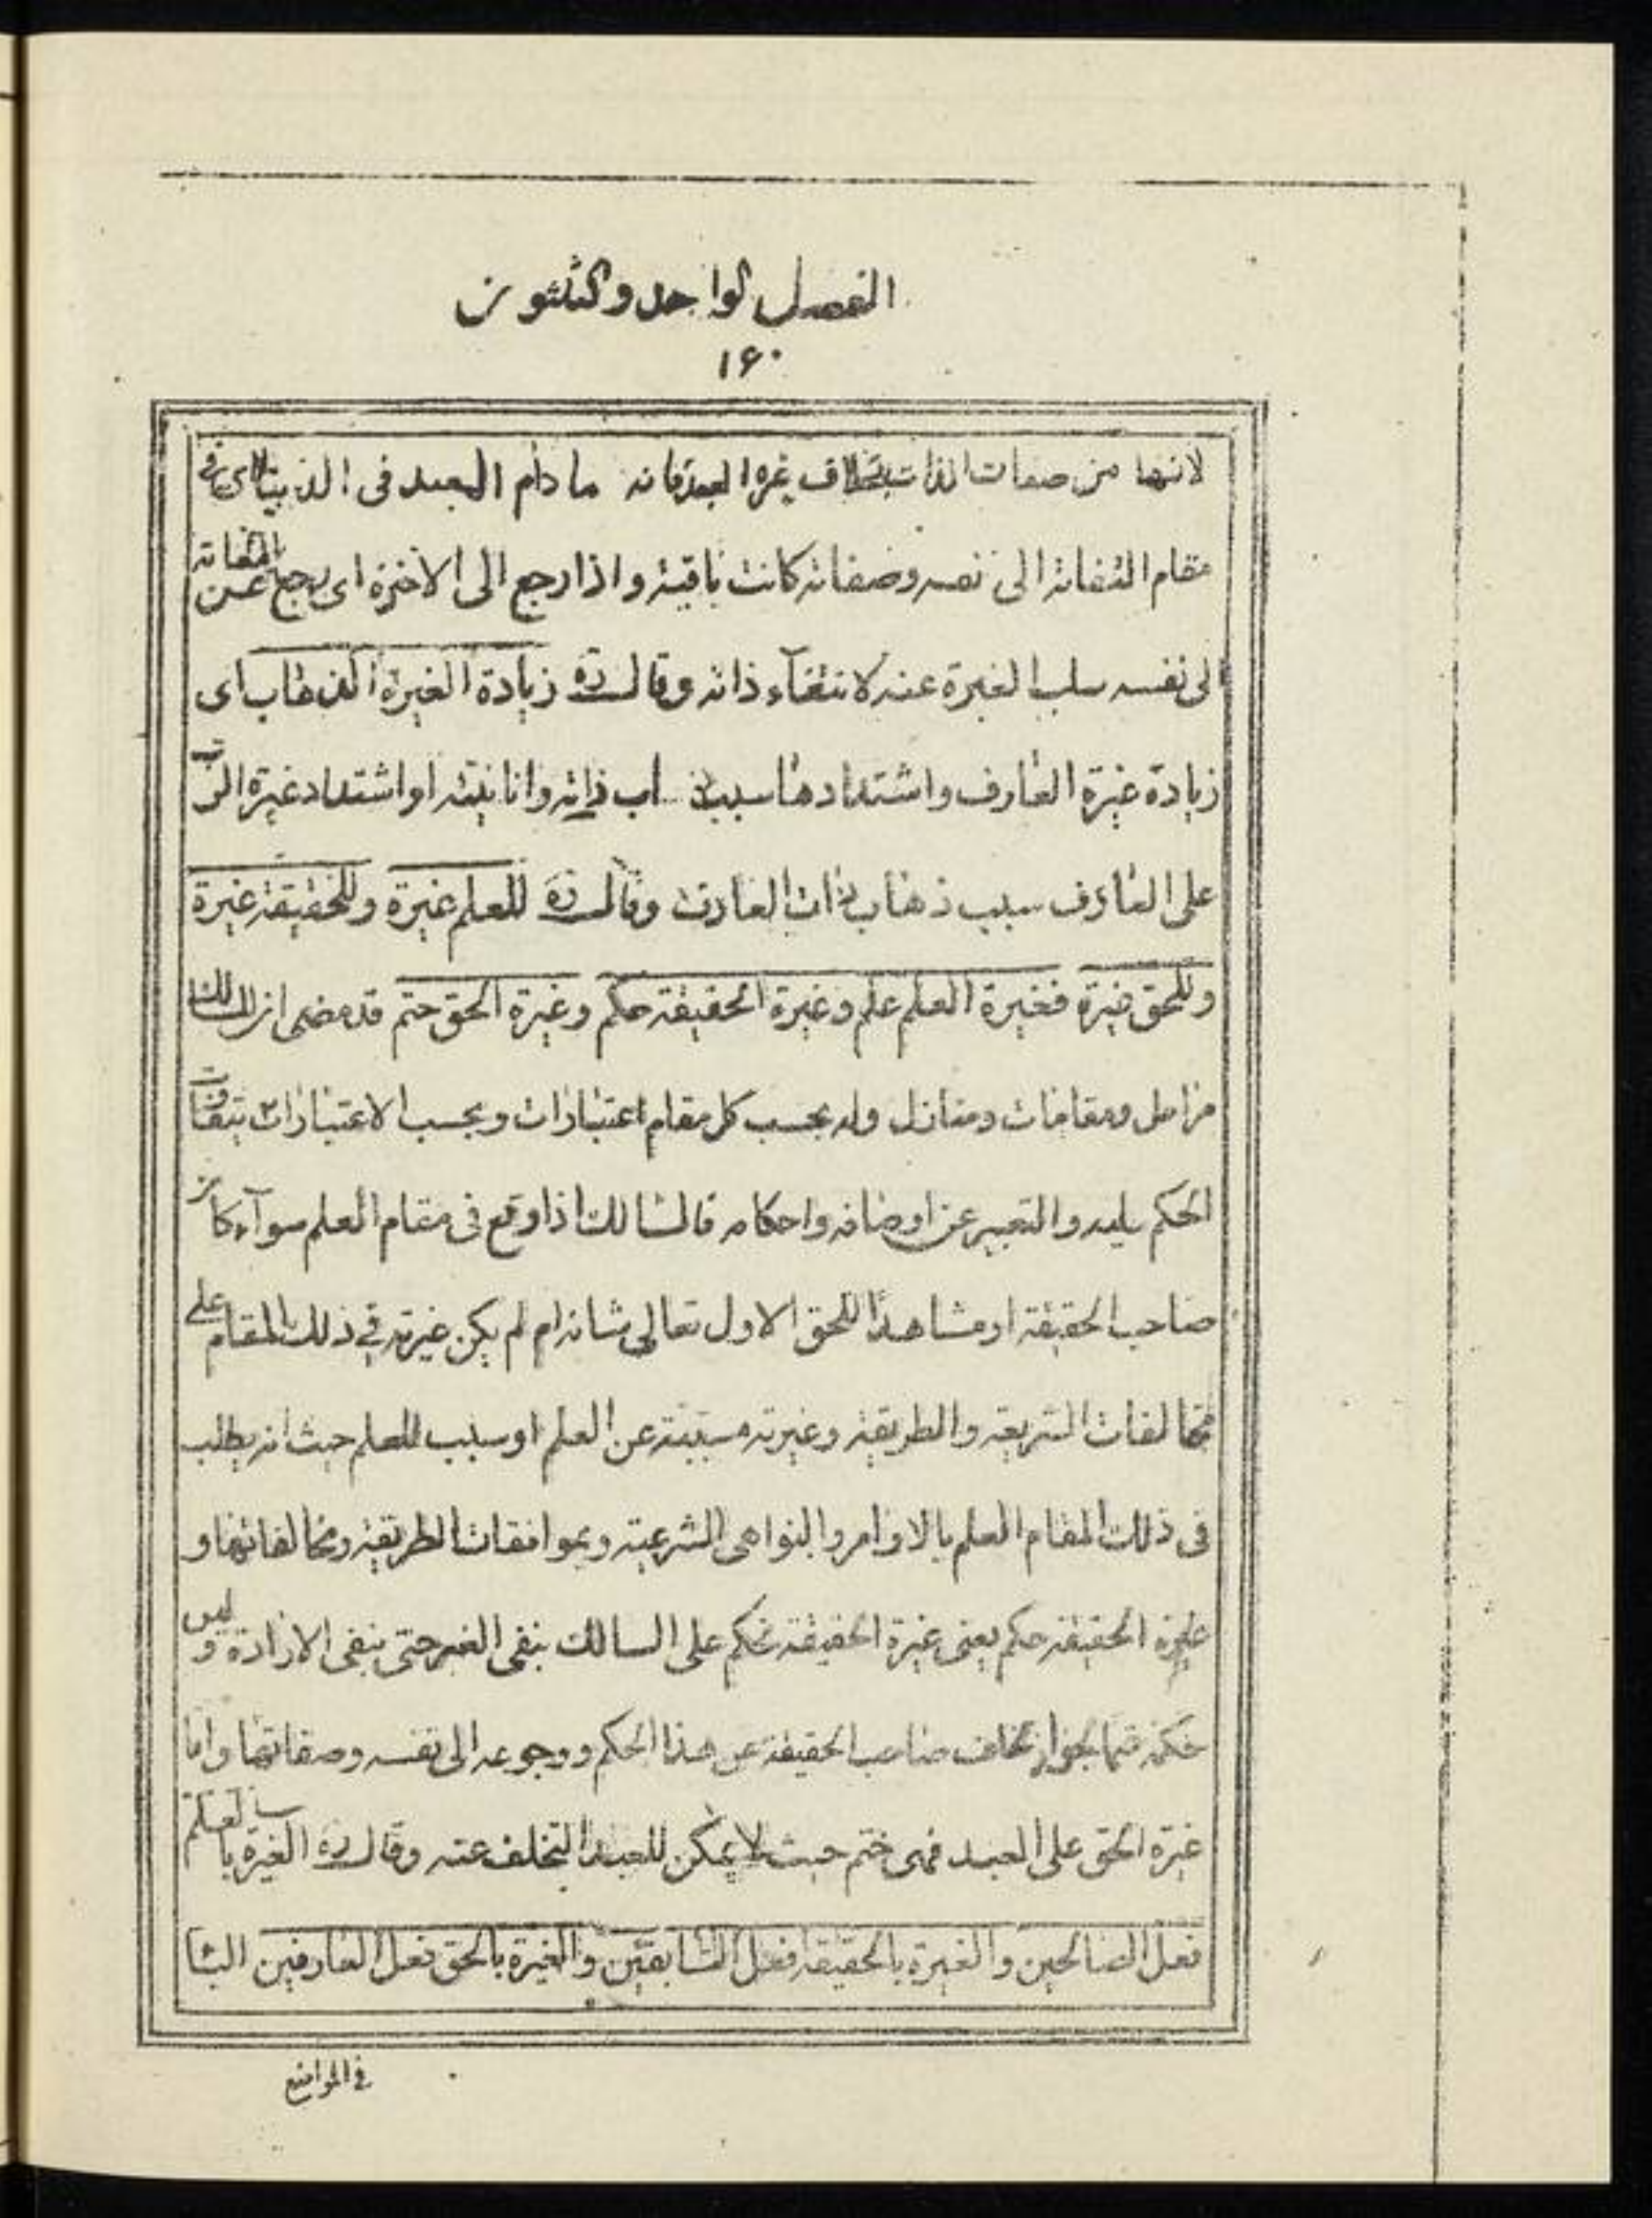 الفصل الواحد والثلثون
۱۶۰
لانها من صفات الذات بخلاف غيرة العبد فانه ما دام العبد فى الدنيا اى فى
مقام التفاته الى نفسه وصفاته كانت باقية واذا رجع الى الاخرة اى رجع عن التفاته
الى نفسه سلب الغيرة عنه لانتفآء ذاته وقال ره زيادة الغيرة الذهاب اى
زيادة غيرة العارف واشتدادها سبب ذهاب ذاته وانانيته او اشتداد غيرة الرب
على العارف سبب ذهاب ذات العارف وقال ره للعلم غيرة وللحقيقة غيرة
وللحق غيرة فغيرة العلم علم وغيرة الحقيقة حكم وغيرة الحق حتم قد مضى ان للسالك
مراحل ومقامات ومنازل وله بحسب كل مقام اعتبارات وبحسب الاعتبارات يتفاوت
الحكم عليه والتعبير عن اوصافه واحكامه فالسالك اذا وقع فى مقام العلم سوآء كان
صاحب الحقيقة او مشاهدا للحق الاول تعالى شانه ام لم يكن غيرته فى ذلك المقام على
مخالفات الشريعة والطريقة وغيرته مسببة عن العلم او سبب للعلم حيث انه يطلب
فى ذلك المقام العلم بالاوامر والنواهى الشرعية وبموافقات الطريقة ومخالفاتها و
غيرة الحقيقة حكم يعنى غيرة الحقيقة تحكم على السالك بنفى الغير حتى بنفى الارادة وليس
حكمه حتما لجواز تخلف صاحب الحقيقة عن هذا الحكم ورجوعه الى نفسه وصفاتها واما
غيرة الحق على العبد فهى حتم حيث لا يمكن للعبد التخلف عنه وقال ره الغيرة بالعلم
فعل الصالحين والغيرة بالحقيقة فعل السابقين والغيرة بالحق فعل العارفين البا
فى المواضع